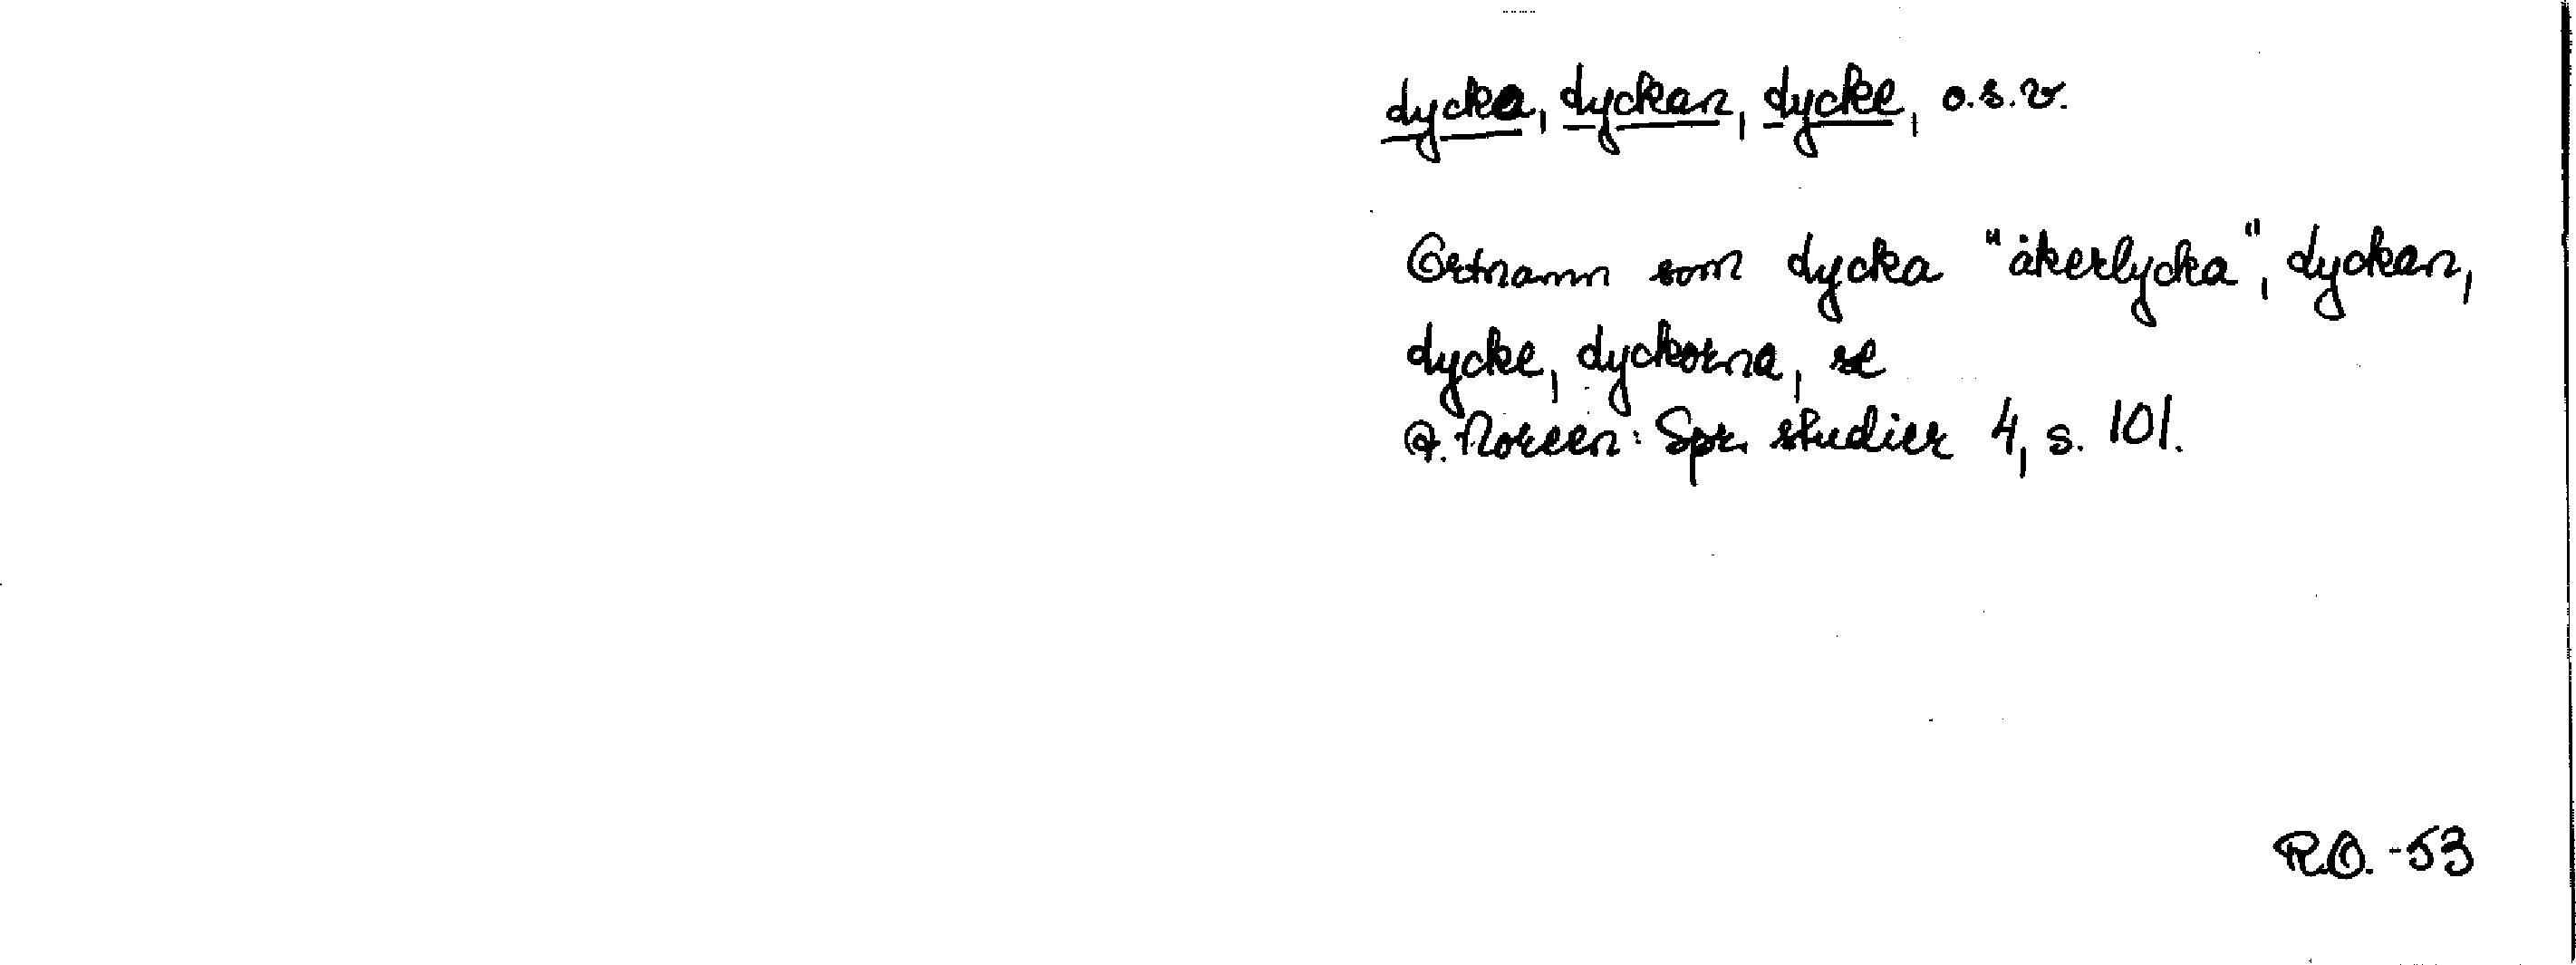 dycka, dyckan, dycke, o.s.v.
Ortnamn som dycka "åkerlycka", dyckan,
dycke, dyckorna, se
A. Noreen: Spr. studier 4, s. 101.
R.O. -53